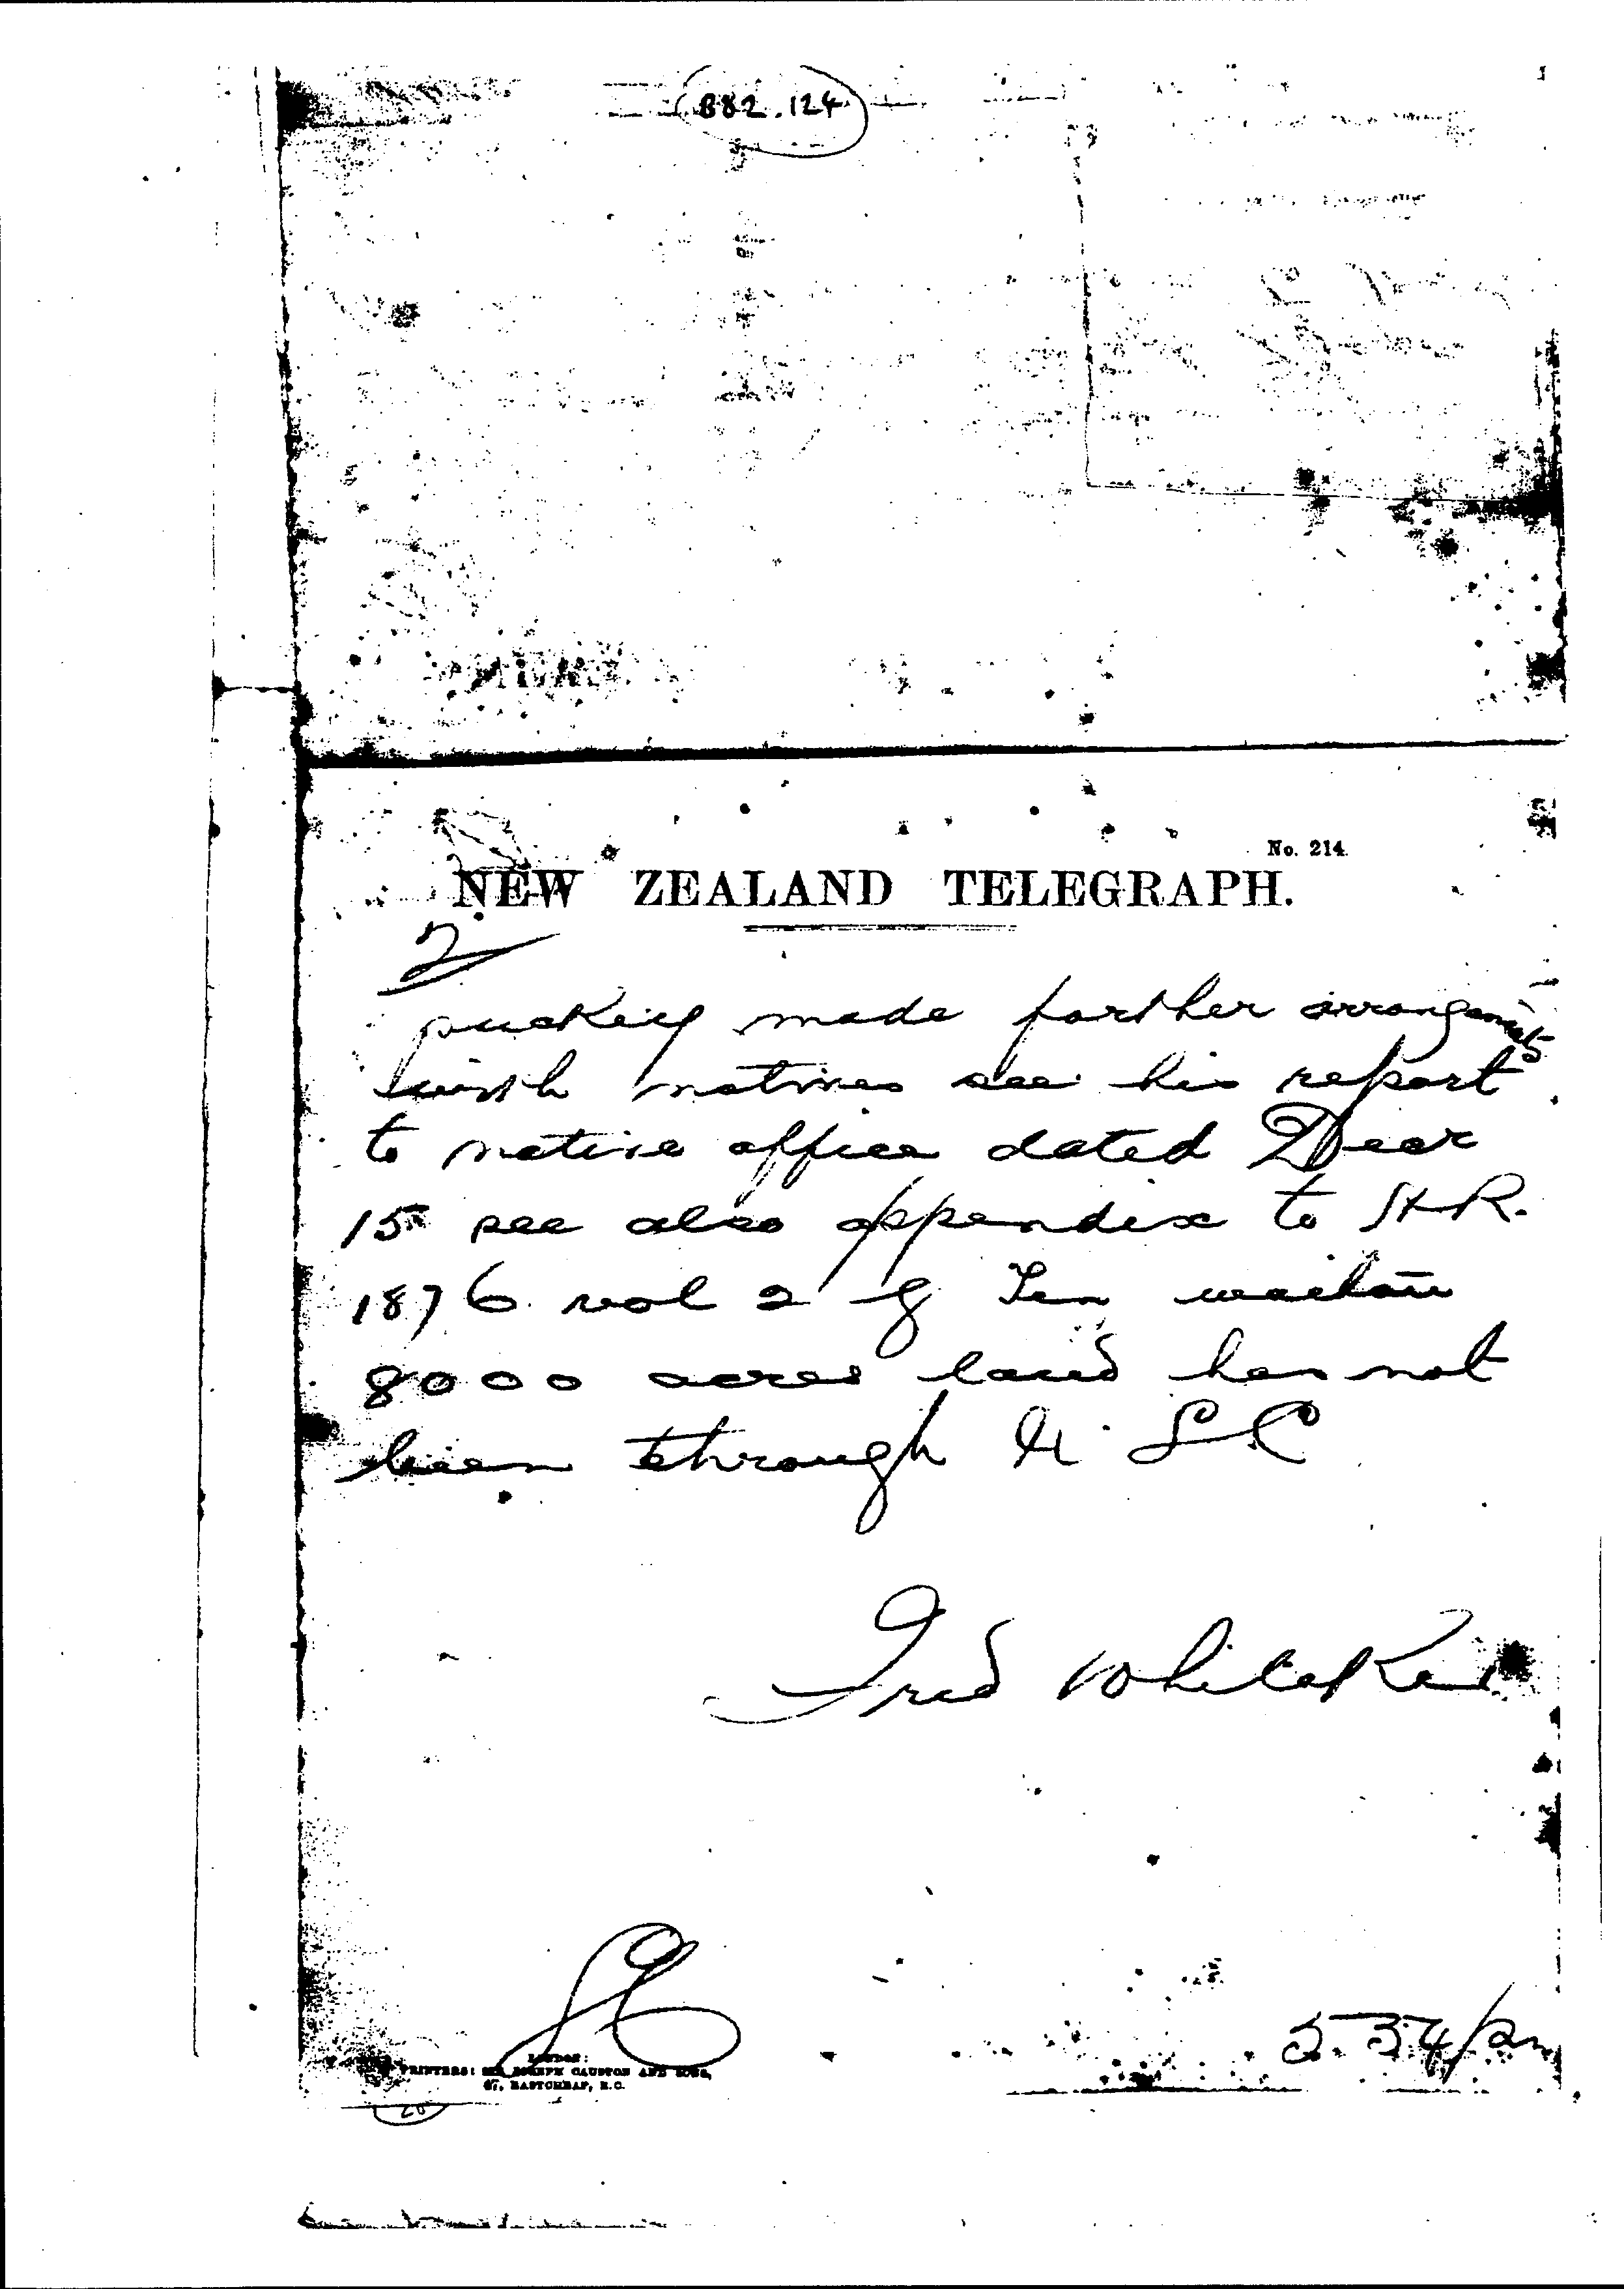 B82.124
No. 214.
NEW ZEALAND TELEGRAPH.
2
puckey made further arrangements
with natives see his report
to native office dated Decr
15 see also appendix to H R.
1876 vol 2 g Ten
8000 acres land has not
been through N. L C
Fred Whitaker
LONDON:
PRINTERS: SIR JOSEPH CAUSTON AND SONS,
47, EASTCHEAP, E.C.
5.34/pm